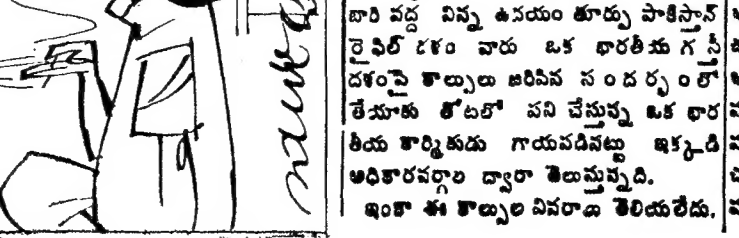 బారి వద్ద నిన్న ఉదయం తూర్పు పాకిస్తాన్
రైఫిల్ దళం వారు ఒక భారతీయ గస్తీ
దళంపై కాల్పులు జరిపిన సందర్భంలో
తేయాకు తోటలో పని చేస్తున్న ఒక భార
తీయ కార్మికుడు గాయపడినట్టు ఇక్కడి
అధికారవర్గాల ద్వారా తెలుస్తున్నది.
ఇంకా ఈ కాల్పుల వివరాలు తెలియలేదు.